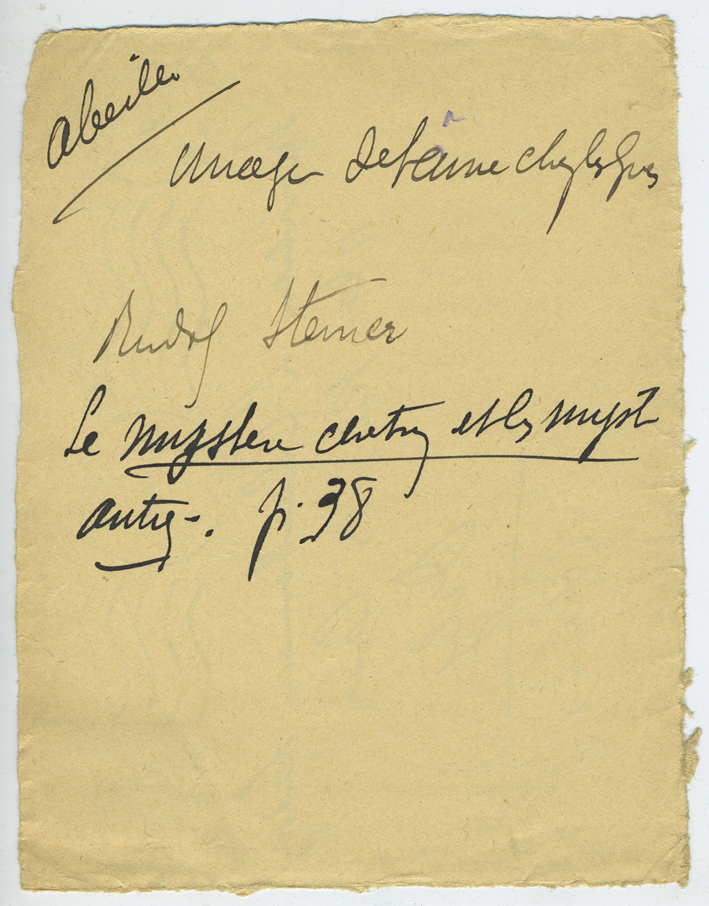 Abeilles
Image de l'âme chez les Grecs
Rudolf Steiner
Le mystère chrétien et les myst
antiq-. p. 38